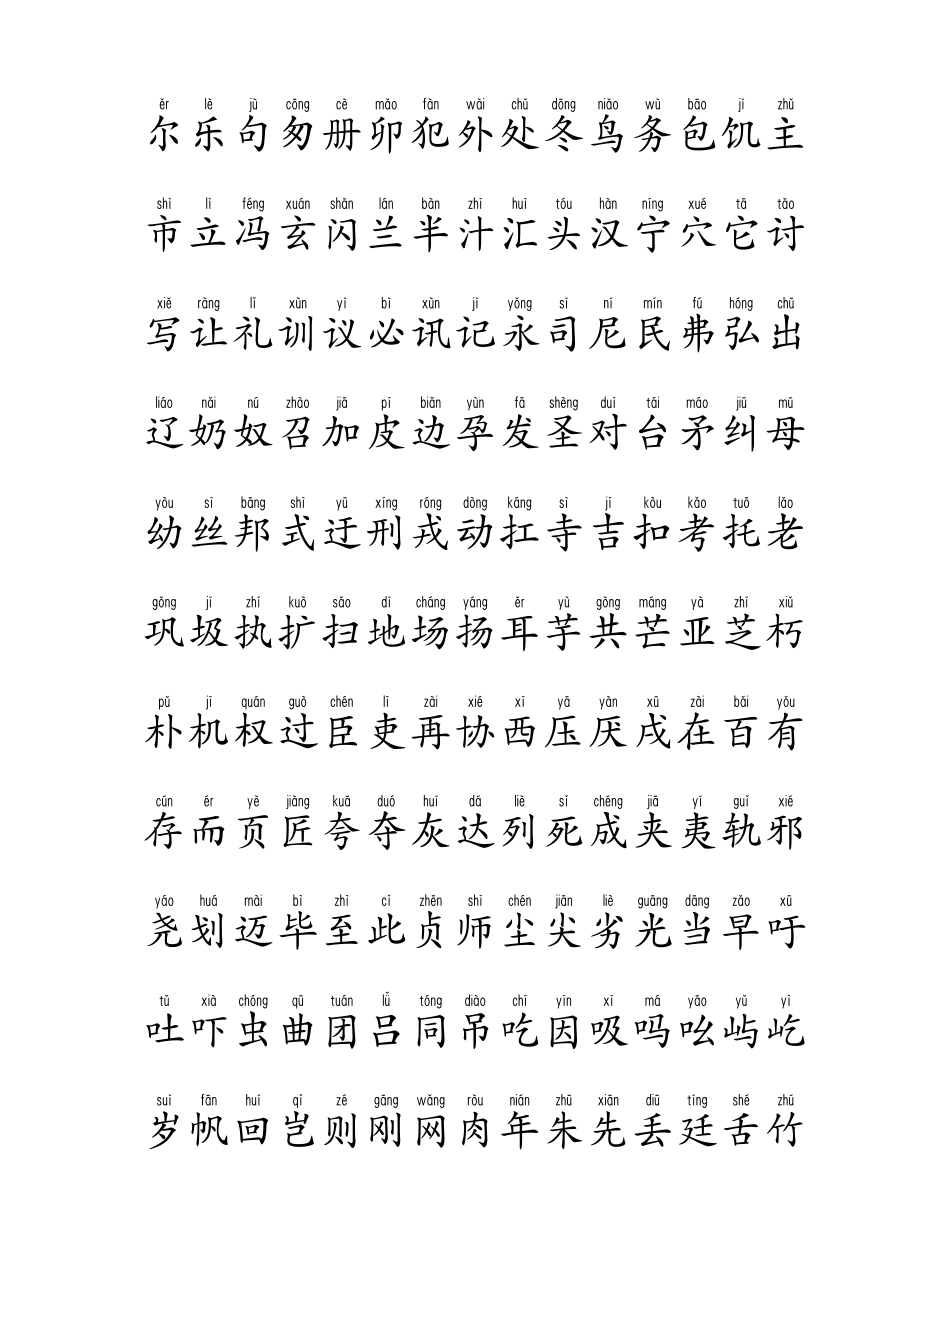 ěr lè jù cōng cè mǎo fàn wài chǔ dōng niǎo wù bāo jī zhǔ
尔乐句匆册卯犯外处冬鸟务包饥主
shì lì féng xuán shǎn lán bàn zhī huì tóu hàn níng xué tā tǎo
市立冯玄闪兰半汁汇头汉宁穴它讨
xiě ràng lǐ xùn yì bì xùn jì yǒng sī ní mín fú hóng chū
写让礼训议必讯记永司尼民弗弘出
liáo nǎi nú zhào jiā pí biān yùn fā shèng duì tái máo jiū mǔ
辽奶奴召加皮边孕发圣对台矛纠母
yòu sī bāng shì yū xíng róng dòng káng sì jí kòu kǎo tuō lǎo
幼丝邦式迂刑戎动扛寺吉扣考托老
gǒng jī zhí kuò sǎo dì cháng yáng ěr yù gòng máng yà zhī xiǔ
巩圾执扩扫地场扬耳芋共芒亚芝朽
pǔ jī quán guò chén lì zài xié xī yā yàn xū zài bǎi yǒu
朴机权过臣吏再协西压厌戌在百有
cún ér yè jiàng kuā duó huī dá liè sǐ chéng jiā yí guǐ xié
存而页匠夸夺灰达列死成夹夷轨邪
yáo huá mài bì zhì cǐ zhēn shī chén jiān liè guāng dāng zǎo xū
尧划迈毕至此贞师尘尖劣光当早吁
tǔ xià chóng qū tuán lǚ tóng diào chī yīn xī má yāo yǔ yì
吐吓虫曲团吕同吊吃因吸吗吆屿屹
suì fān huí qǐ zé gāng wǎng ròu nián zhū xiān diū tíng shé zhú
岁帆回岂则刚网肉年朱先丢廷舌竹